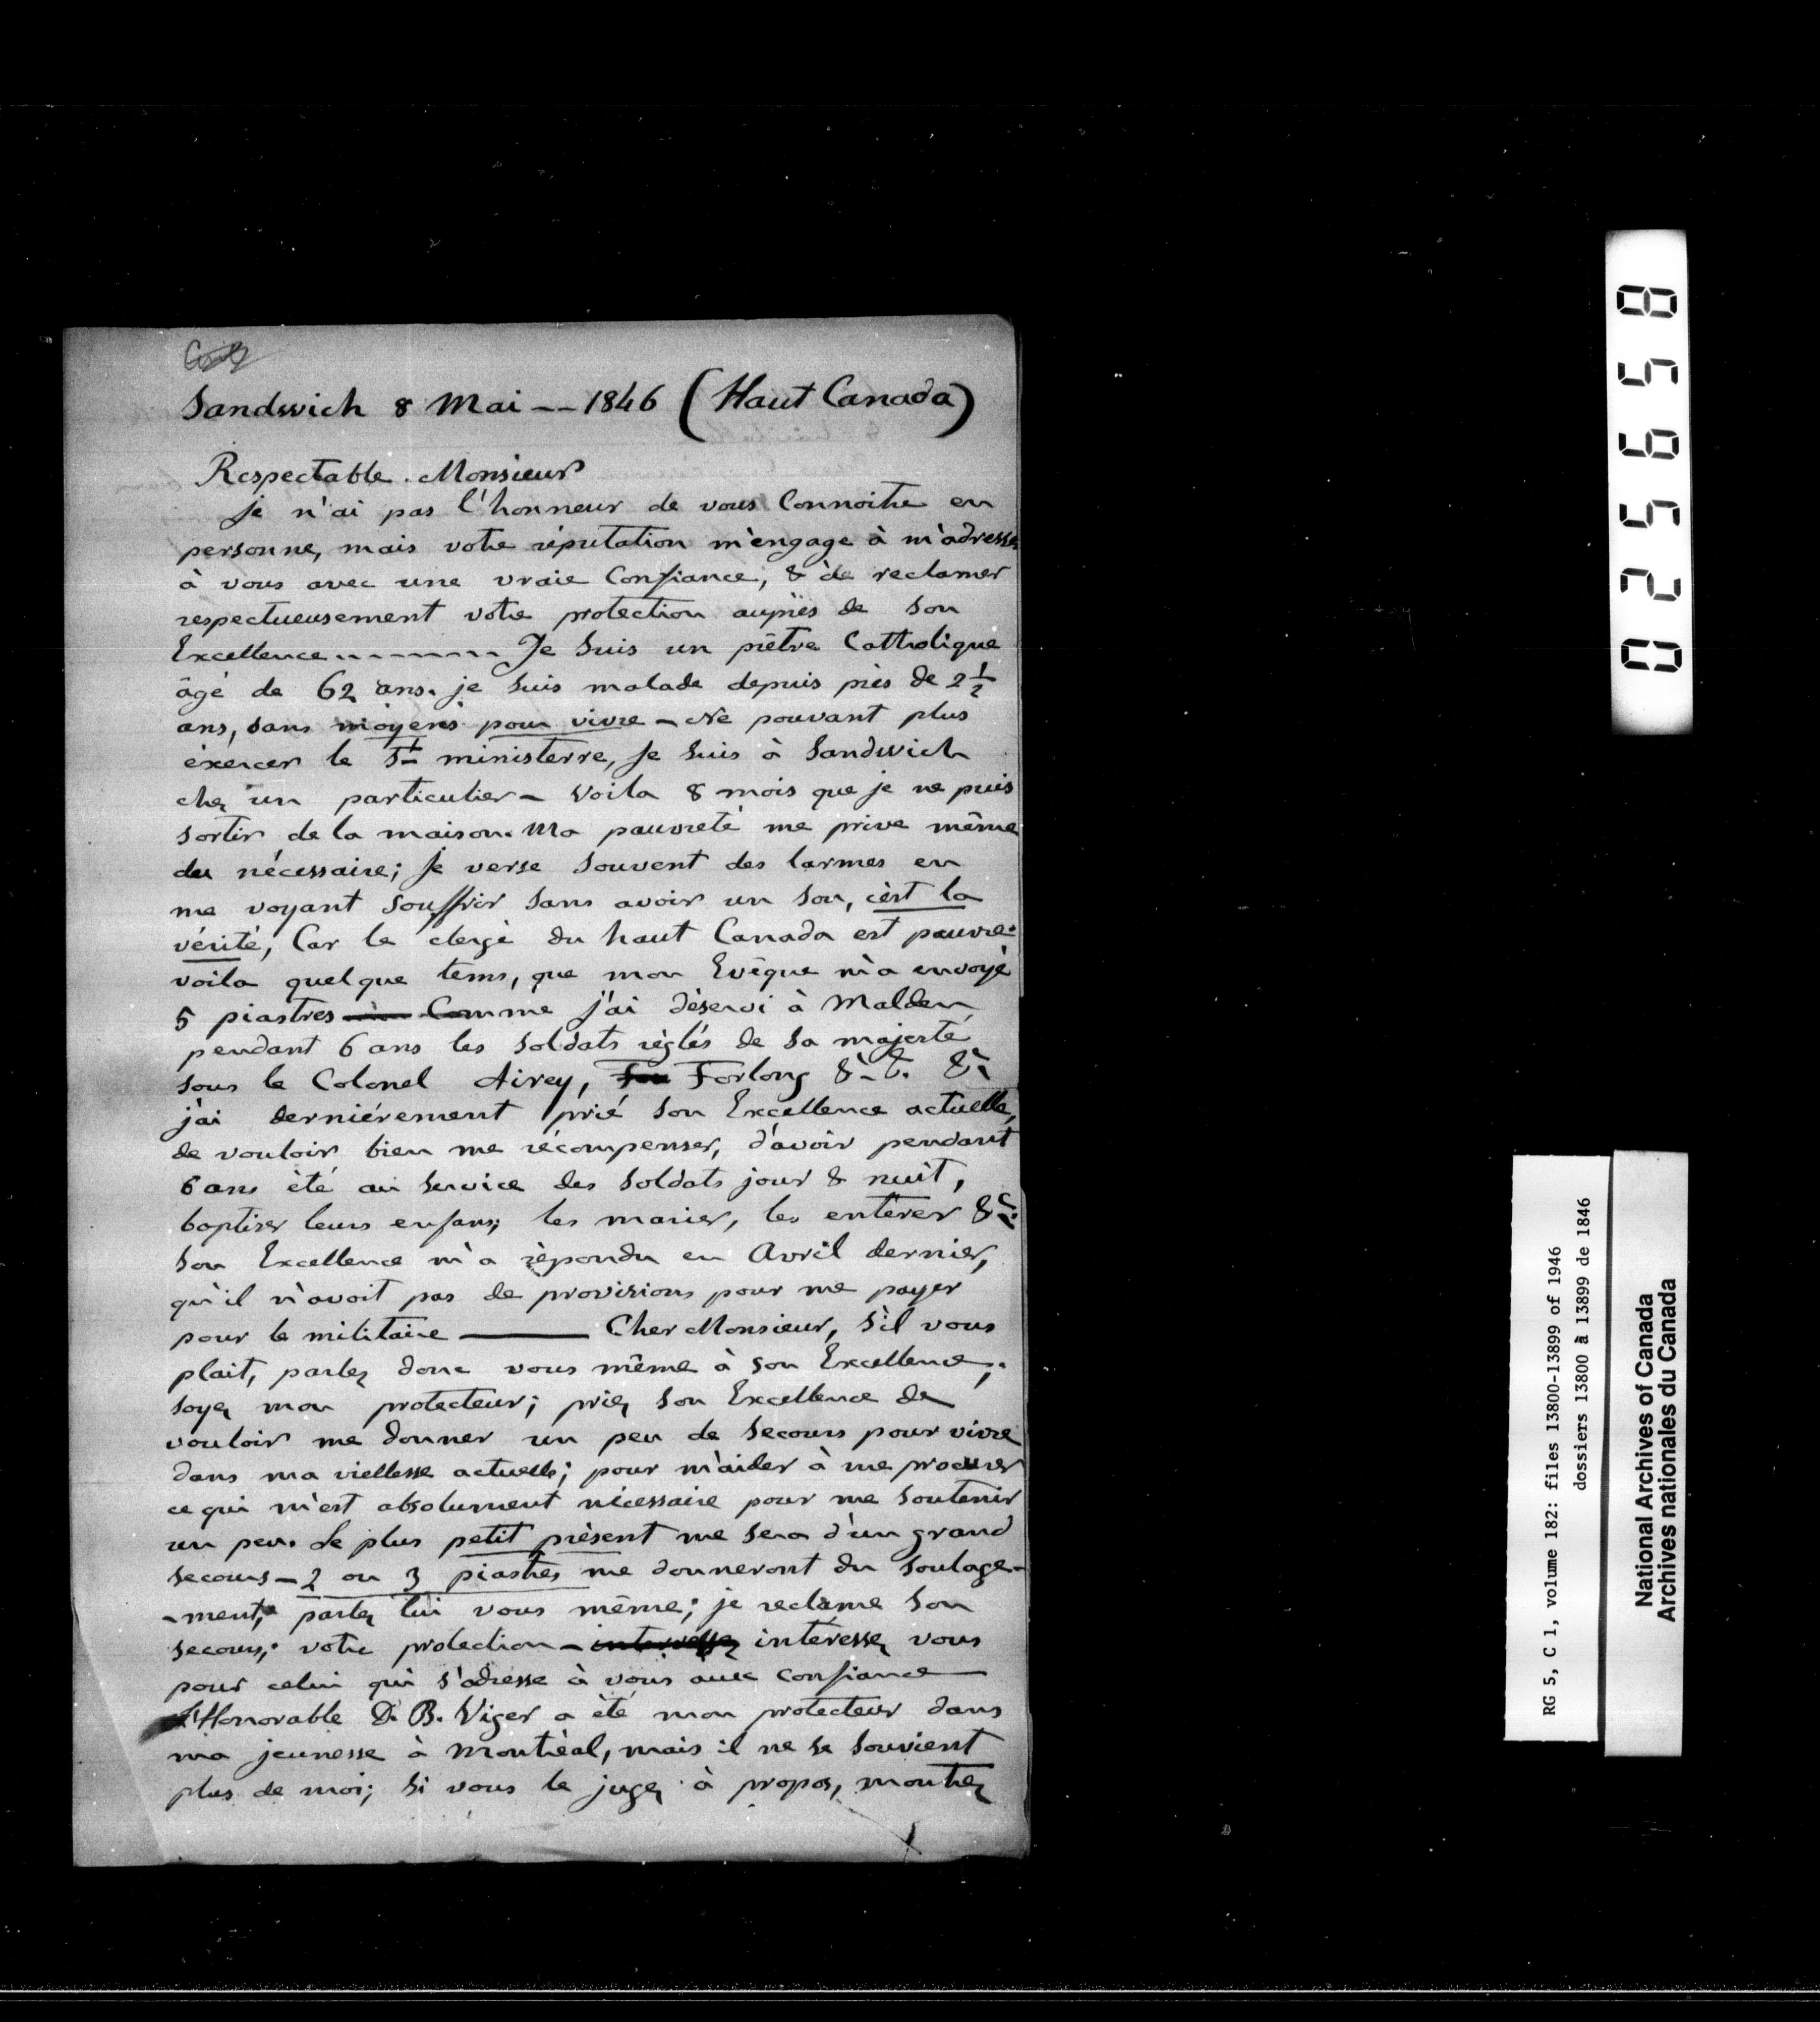 Sandwich 8 Mai -- 1846 (Haut Canada)
Respectable Monsieur
je n'ai pas l'honneur de vous Connoitre en
personne, mais votre réputation m'engage à m'adresser
à vous avec une vraie Confiance, & de reclamer
respectueusement votre protection auprès de Son
Excellence --------- Je Suis un prêtre Catholique
âgé de 62 ans. je Suis malade depuis près de 2 1/2
ans, sans moyens pour vivre - Ne pouvant plus
éxercer le St ministerre, Je Suis à Sandwich
chez un particulier - Voila 8 mois que je ne puis
Sortir de la maison. Ma pauvreté me prive même
du nécessaire; Je verse Souvent des larmes en
me voyant Souffrir Sans avoir un Sou, c'est la
vérité, Car le clergé du haut Canada est pauvre:
voila quelque tems, que mon Evêque m'a envoyé
5 piastres Comme j'ai déservi à Malden
pendant 6 ans les Soldats réglés de Sa majesté
sous le Colonel Airey, Forlong &c. &c. &c.
j'ai derniérement prié Son Excellence actuelle,
de vouloir bien me récompenser, d'avoir pendant
6 ans été au Service des Soldats jour & nuit,
baptiser leurs enfans; les marier, les entérer &c.
Son Excellence m'a répondu en Avril dernier,
qu'il n'avoit pas de provisions pour me payer
pour le militaire ——— Cher Monsieur, S'il vous
plait, parlez donc vous même à Son Excellence;
soyez mon protecteur; priez Son Excellence de
vouloir me donner un peu de Secours pour vivre
dans ma viellesse actuelle; pour m'aider à me procurer
ce qui m'est absolument nécessaire pour me Soutenir
un peu. Le plus petit présent me Sera d'un grand
secours - 2 ou 3 piastres me donneront du Soulage-
-ment, parlez lui vous même; je reclame Son
secours; votre protection - intéressez vous
pour celui qui s'adresse à vous avec Confiance —
L'Honorable D. B. Viger a été mon protecteur dans
ma jeunesse à Montréal, mais il ne Se Souvient
plus de moi; Si vous le jugez à propos, montrez
025658
RG 5, C 1, volume 182: files 13800-13899 of 1946
dossiers 13800 à 13899 de 1846
National Archives of Canada
Archives nationales du Canada